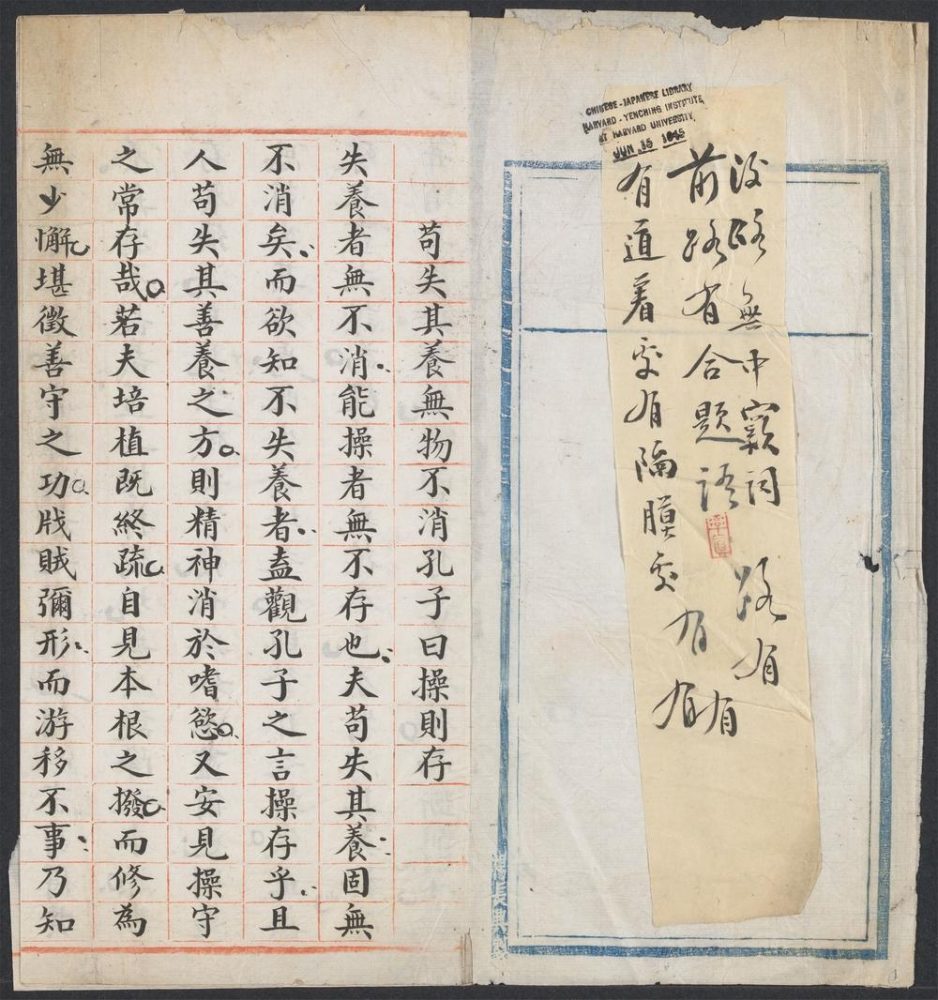 CHINESE-JAPANESE LIBRARY
HARVARD-YENCHING INSTITUTE
AT HARVARD UNIVERSITY
JUN 15 1945
後路無中竅詞
前路有合題語
有道着處有隔膜處
苟失其養無物不消孔子曰操則存
失養者無不消能操者無不存也夫苟失其養固無
不消矣而欲知不失養者盍觀孔子之言操存乎且
人苟失其善養之方則精神消於嗜慾又安見操守
之常存哉若夫培植既終疏自見本根之撥而修為
無少懈堪徵善守之功戕賊彌形而游移不事乃知